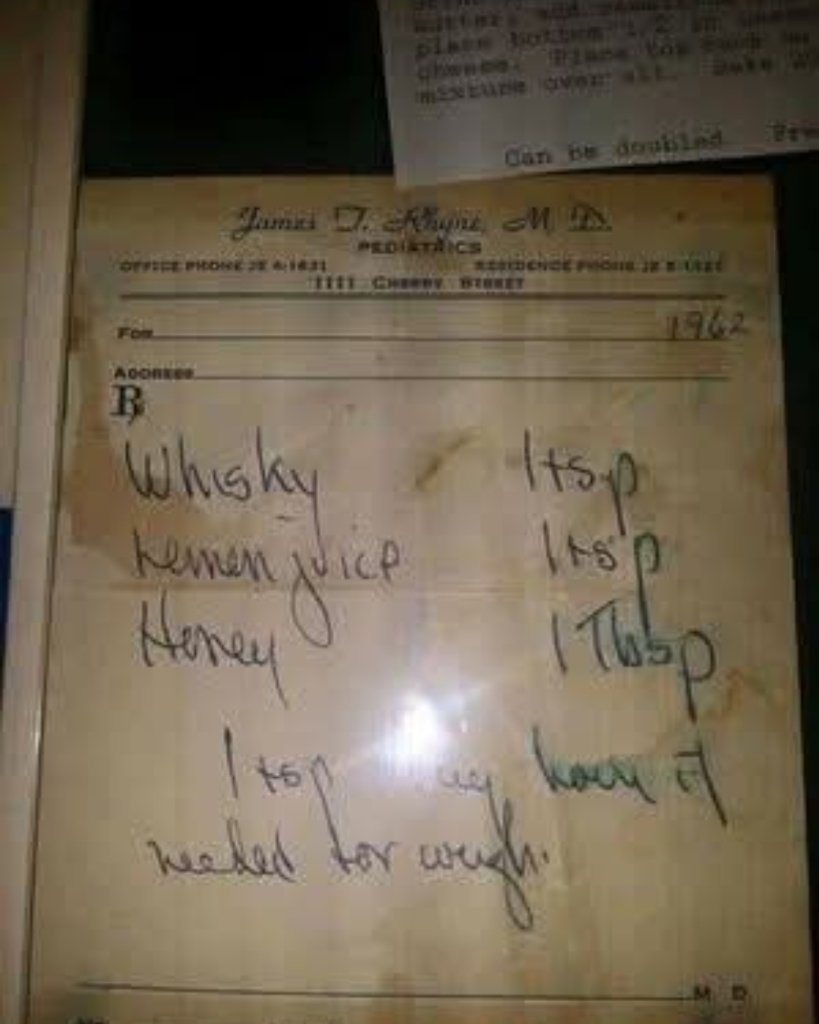 butter, and
place bottom 1/2 in
cheese. Place top each
mixture over all. Bake
Can be doubled. Fre
James T. Rhyne, M. D.
PEDIATRICS
OFFICE PHONE JE 4-1631 RESIDENCE PHONE JE
1111 CHERRY STREET
FOR 1962
ADDRESS
℞
Whisky 1 tsp
Lemon juice 1 tsp
Honey 1 Tbsp
1 tsp hour if
needed for cough.
M. D.